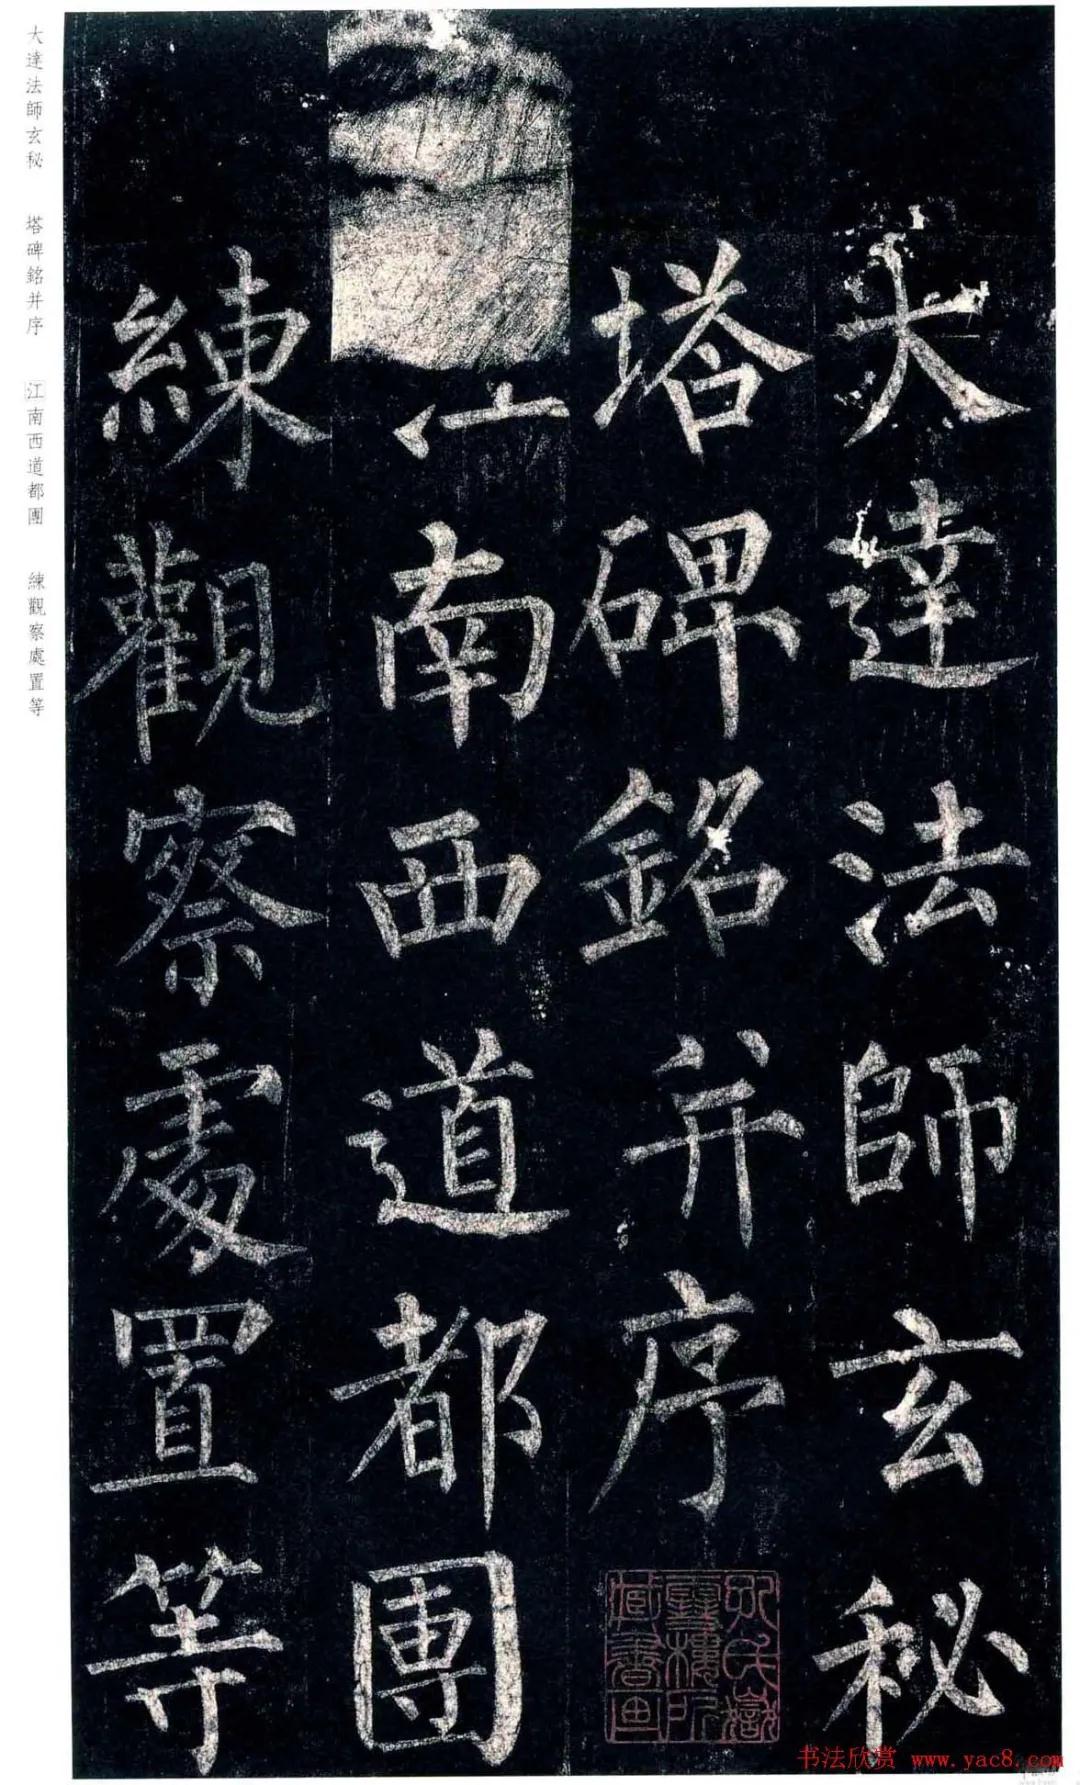 大達法師玄秘
塔碑銘并序
南西道都團
練觀察處置等
大達法師玄秘 塔碑銘并序 江南西道都團 練觀察處置等
書法欣赏 www.yac8.com